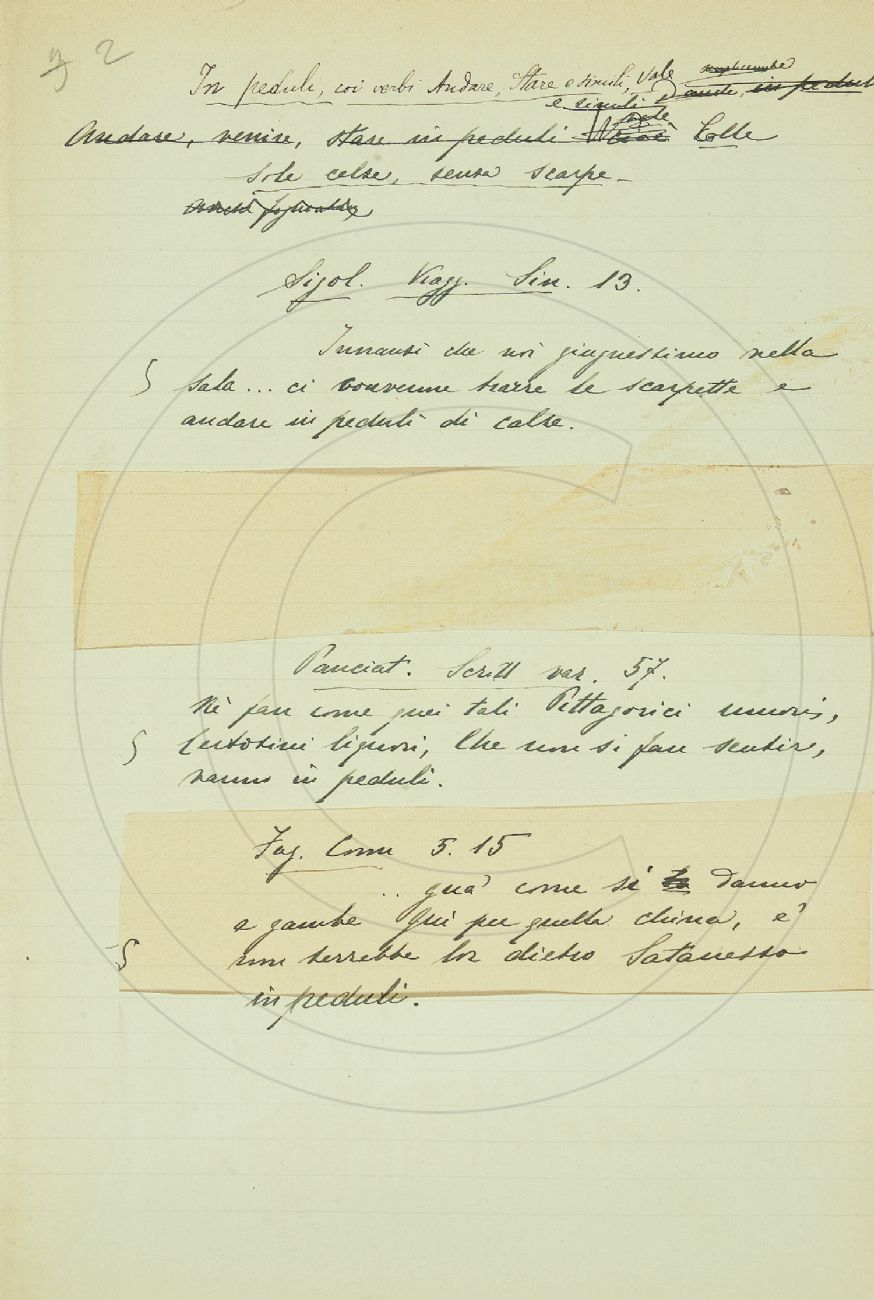 3 2
In peduli, coi verbi Andare, Stare e simili, Vale
e simili
vale
Andare, venire, stare in peduli Colle
Sole calze, senza scarpe_
Sigol. Viagg. Sin. 13.
Innanzi che noi giugnessimo nella
sala... ci convenne trarre le scarpette e
andare in peduli di calze.
Panciat. Scritt var. 57.
Nè fan come quei tali Pittagorici umori,
Certosini liquori, Che non si fan sentire,
vanno in peduli.
Fag. Com 5. 15
.. guà come si danno
a gambe Giù per quella china, e'
non terrebbe lor dietro Satanesso
in peduli.